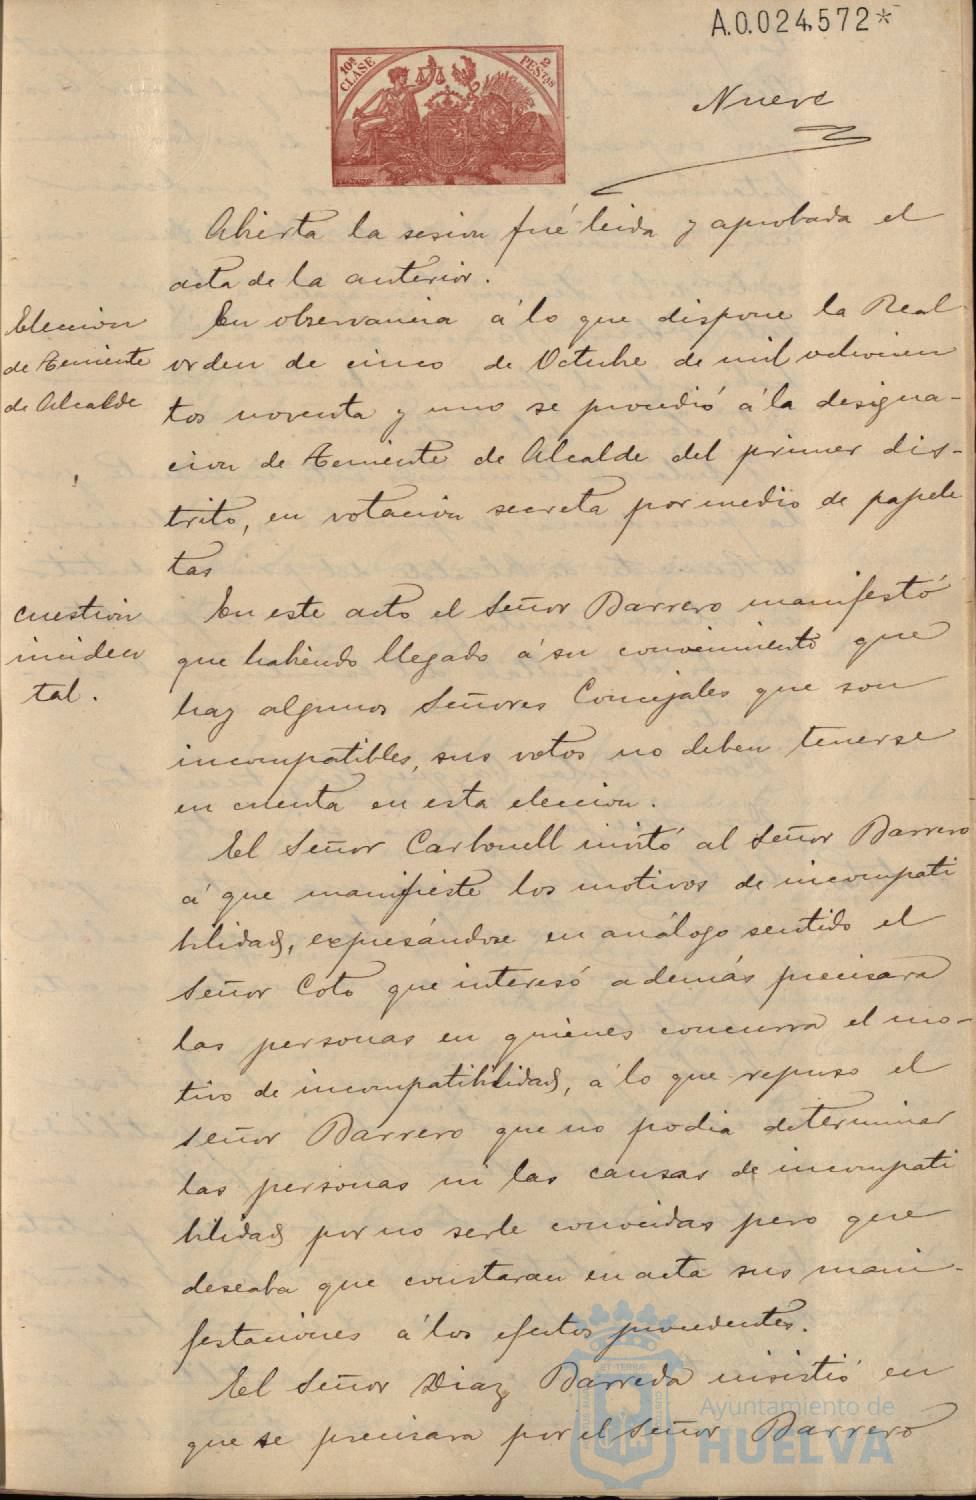 A.0.024.572*
10ª CLASE
2 PESTAS
Nueve
Abierta la sesion fué leida y aprobada el
acta de la anterior.
Eleccion
de Teniente
de Alcalde
En observancia á lo que dispone la Real
orden de cinco de Octubre de mil ochocien
tos noventa y uno se procedió á la designa-
cion de Teniente de Alcalde del primer dis-
trito, en votacion secreta por medio de papele
tas
cuestion
inciden
tal.
En este acto el Señor Barrero manifestó
que habiendo llegado á su convenimiento que
hay algunos Señores Concejales que son
incompatibles, sus votos no deben tenerse
en cuenta en esta eleccion.
El Señor Carbonell invitó al Señor Barrero
á que manifieste los motivos de incompati
bilidad, expresándose en análogo sentido el
Señor Coto que interesó además precisara
las personas en quienes concurra el mo-
tivo de incompatibilidad, á lo que repuso el
Señor Barrero que no podia determinar
las personas ni las causas de incompati
bilidad por no serle conocidas pero que
deseaba que constaran en acta sus mani-
festaciones á los efectos procedentes.
El Señor Diaz Barreda insistió en
que se precisara por el Señor Barrero
Ayuntamiento de
HUELVA